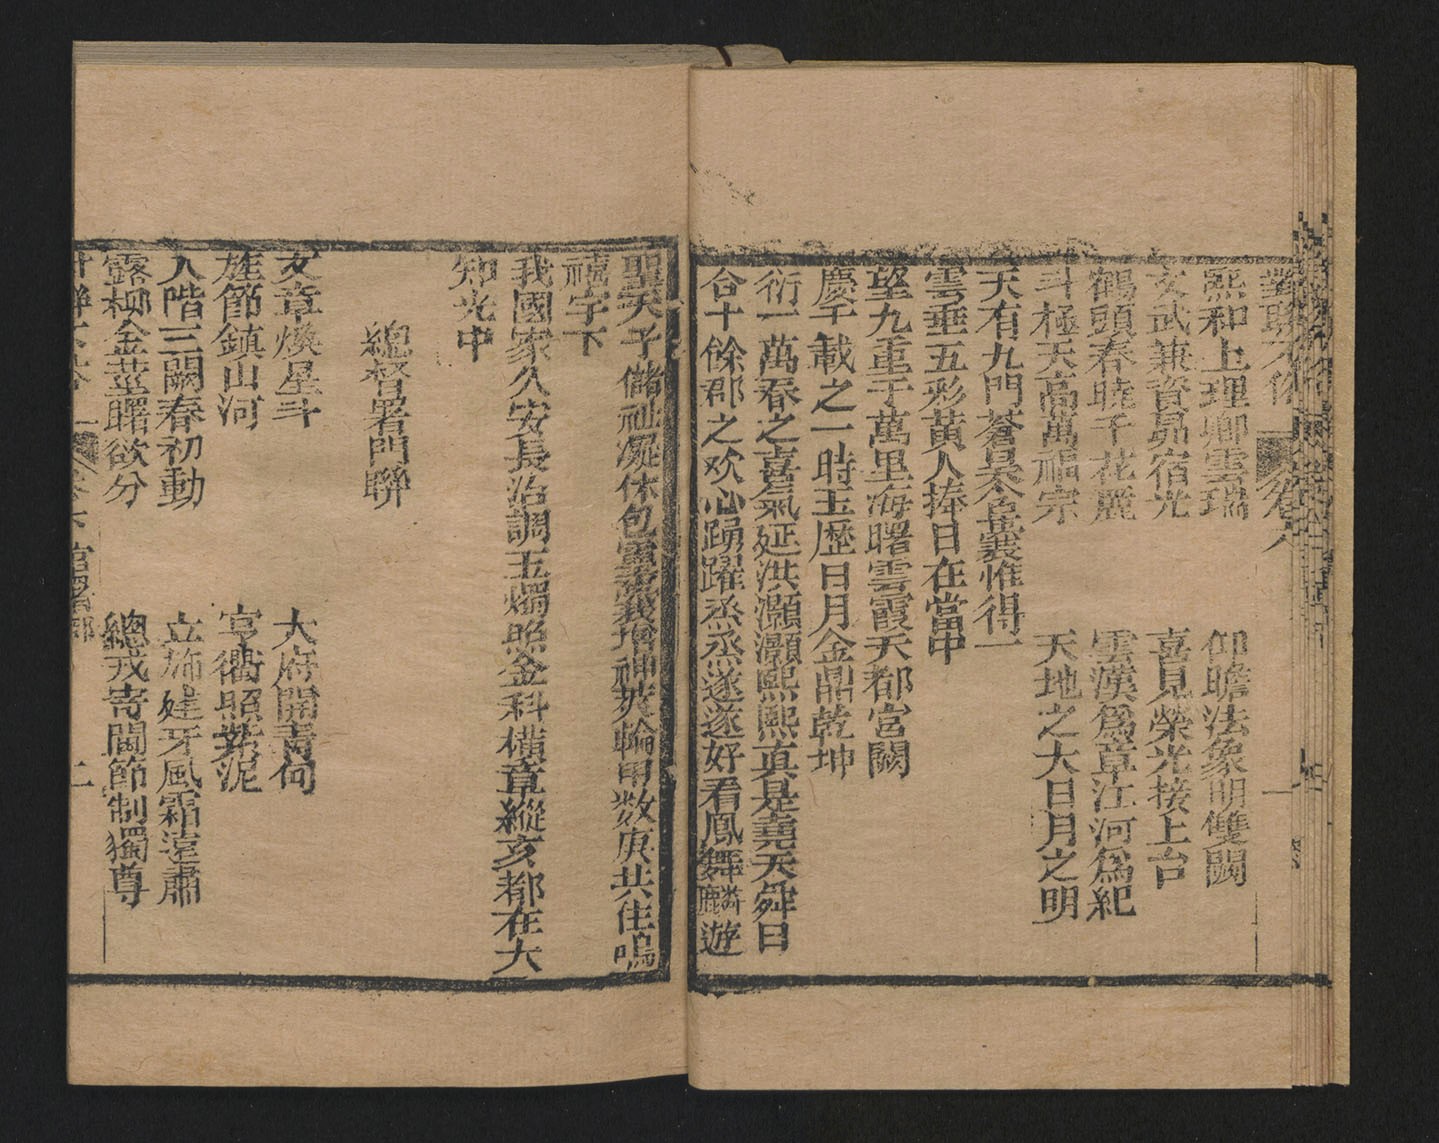 對聯不俗 卷六
熙和上理卿雲瑞 仰瞻法象明雙闕
文武兼資昴宿光 喜見榮光接上台
鶴頭春曉千花麗 雲漢爲章江河爲紀
斗極天高萬福宗 天地之大日月之明
天有九門蒼昊含壺囊惟得一
雲垂五彩黃人捧日在當中
望九重于萬里海曙雲霞天都宮闕
慶千載之一時玉歷日月金鼎乾坤
衍一萬春之喜氣延洪灝灝熙熙真是堯天舜日
合十餘郡之欢心踴躍烝烝遂遂好看鳳舞麟遊
聖天子儲祉凝休包靈蓄義增神萊輪甲数庚共住鳴
禧字下
我國家久安長治調玉燭照金科横章縱亥都在大
知光中
總督署門聯
文章煥星斗 大府開青何
旌節鎮山河 官衢照紫泥
入階三闕春初動 立旆建牙風霜遠肅
露柳金莖曙欲分 總戎寄閫節制獨尊
對聯不俗 卷六 官署部 二